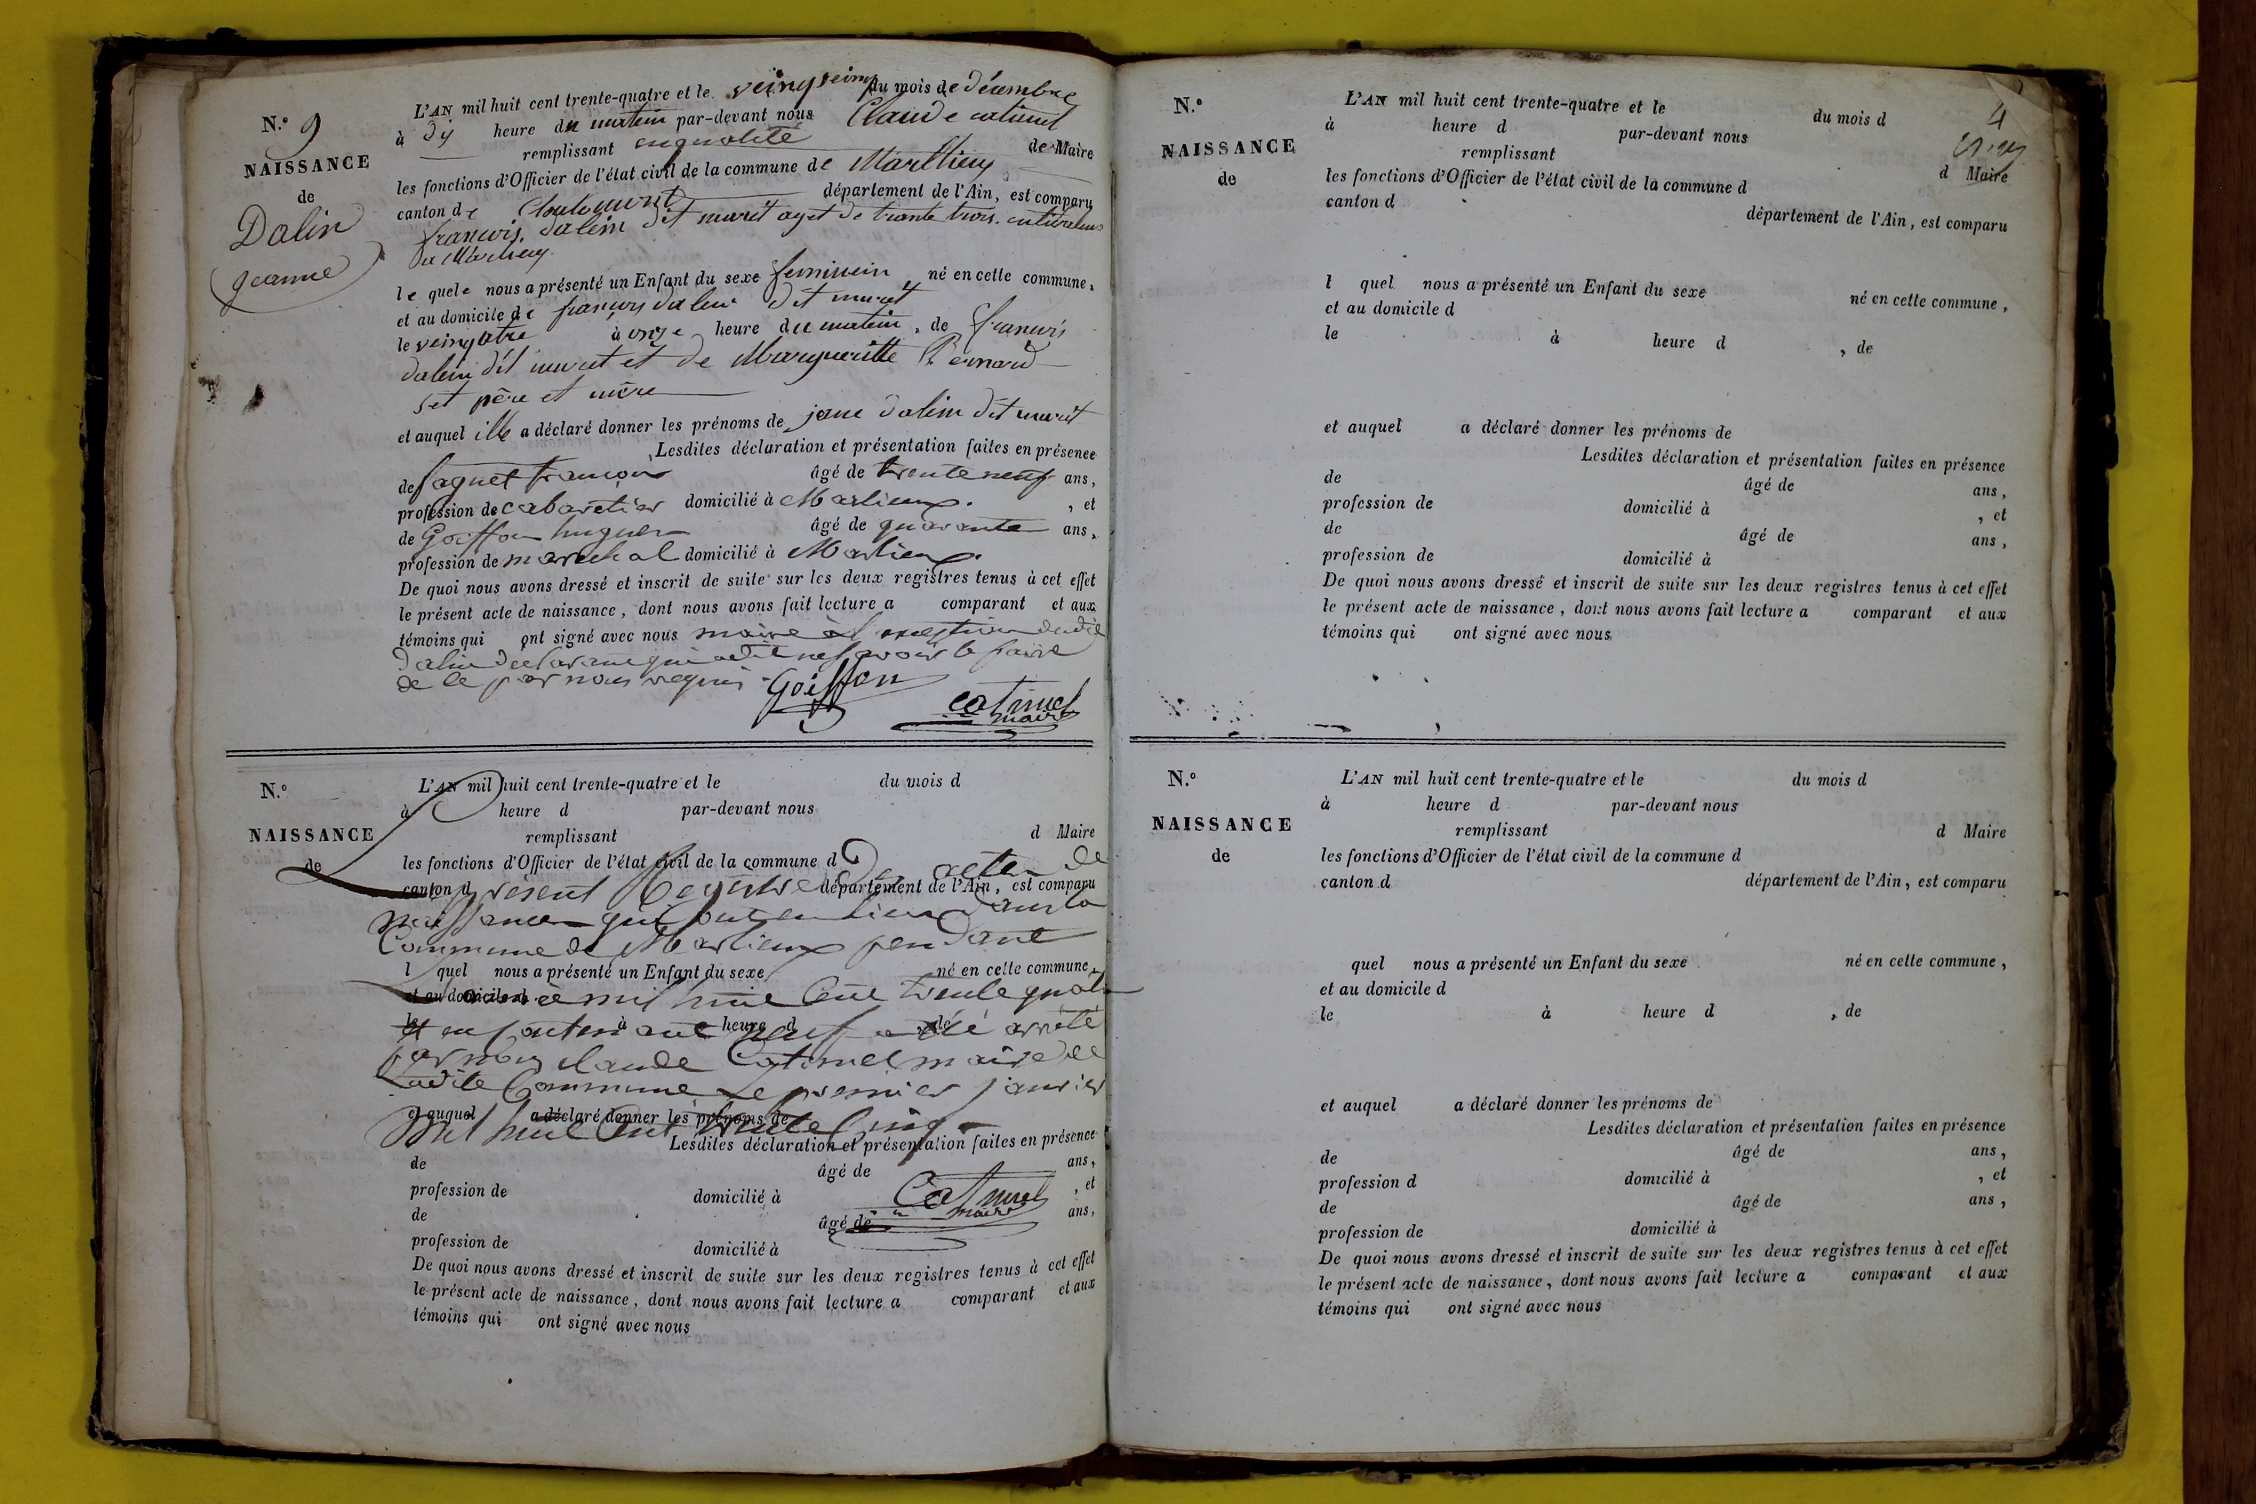 N.° 9
NAISSANCE
de
Dalin
jeanne
L'AN mil huit cent trente-quatre et le veingseinq du mois de décembre
à dij heure du matin par-devant nous Claude catimel
remplissant enqualité de Maire
les fonctions d'Officier de l'état civil de la commune de Marllieux
canton de département de l'Ain, est comparu
françois dalin dit murit aget de trante trois cultivateur
du Marlieux
le quele nous a présenté un Enfant du sexe feminein né en cette commune,
et au domicile de françois dalin dit murit
le à onze heure du matin, de françois
dalin dit murit et de Margueritte Bernard
set père et mère
et auquel ille a déclaré donner les prénoms de jane dalin dit murit
Lesdites déclaration et présentation faites en présence
de françois âgé de trente neuf ans,
profession de cabaretier domicilié à Marlieux, et
de Goiffon hugues âgé de quarante ans,
profession de marechal domicilié à Marlieux.
De quoi nous avons dressé et inscrit de suite sur les deux registres tenus à cet effet
le présent acte de naissance, dont nous avons fait lecture a comparant et aux
témoins qui ont signé avec nous maire à l'exception dudit
dalin declarant qui a dit ne savoir le faire
de ce par nous requis.
Goiffon
catimel
maire
N.°
NAISSANCE
de
L'AN mil huit cent trente-quatre et le du mois d
à heure d par-devant nous
remplissant d Maire
les fonctions d'Officier de l'état civil de la commune d
canton d département de l'Ain, est comparu
Le présent Registre des actes de
naissances qui ont eu lieu dans la
Commune de Marlieux pendant
l quel nous a présenté un Enfant du sexe né en cette commune,
et au domicile d
mil huit Cent trente quatre
le à heure d , de
et en contenant neuf a été arrêté
par nous claude Catimel maire de
Ladite Commune Le premier janvier
et auquel a déclaré donner les prénoms de
Mil huit Cent trente Cinq
Lesdites déclaration et présentation faites en présence
de âgé de ans,
profession de domicilié à , et
Catimel
maire
de âgé de ans,
profession de domicilié à
De quoi nous avons dressé et inscrit de suite sur les deux registres tenus à cet effet
le présent acte de naissance, dont nous avons fait lecture a comparant et aux
témoins qui ont signé avec nous
4
N.°
NAISSANCE
de
L'AN mil huit cent trente-quatre et le du mois d
à heure d par-devant nous
remplissant d Maire
les fonctions d'Officier de l'état civil de la commune d
canton d département de l'Ain, est comparu
l quel nous a présenté un Enfant du sexe né en cette commune,
et au domicile d
le à heure d , de
et auquel a déclaré donner les prénoms de
Lesdites déclaration et présentation faites en présence
de âgé de ans,
profession de domicilié à , et
de âgé de ans,
profession de domicilié à
De quoi nous avons dressé et inscrit de suite sur les deux registres tenus à cet effet
le présent acte de naissance, dont nous avons fait lecture a comparant et aux
témoins qui ont signé avec nous
N.°
NAISSANCE
de
L'AN mil huit cent trente-quatre et le du mois d
à heure d par-devant nous
remplissant d Maire
les fonctions d'Officier de l'état civil de la commune d
canton d département de l'Ain, est comparu
quel nous a présenté un Enfant du sexe né en cette commune,
et au domicile d
le à heure d , de
et auquel a déclaré donner les prénoms de
Lesdites déclaration et présentation faites en présence
de âgé de ans,
profession d domicilié à , et
de âgé de ans,
profession de domicilié à
De quoi nous avons dressé et inscrit de suite sur les deux registres tenus à cet effet
le présent acte de naissance, dont nous avons fait lecture a comparant et aux
témoins qui ont signé avec nous